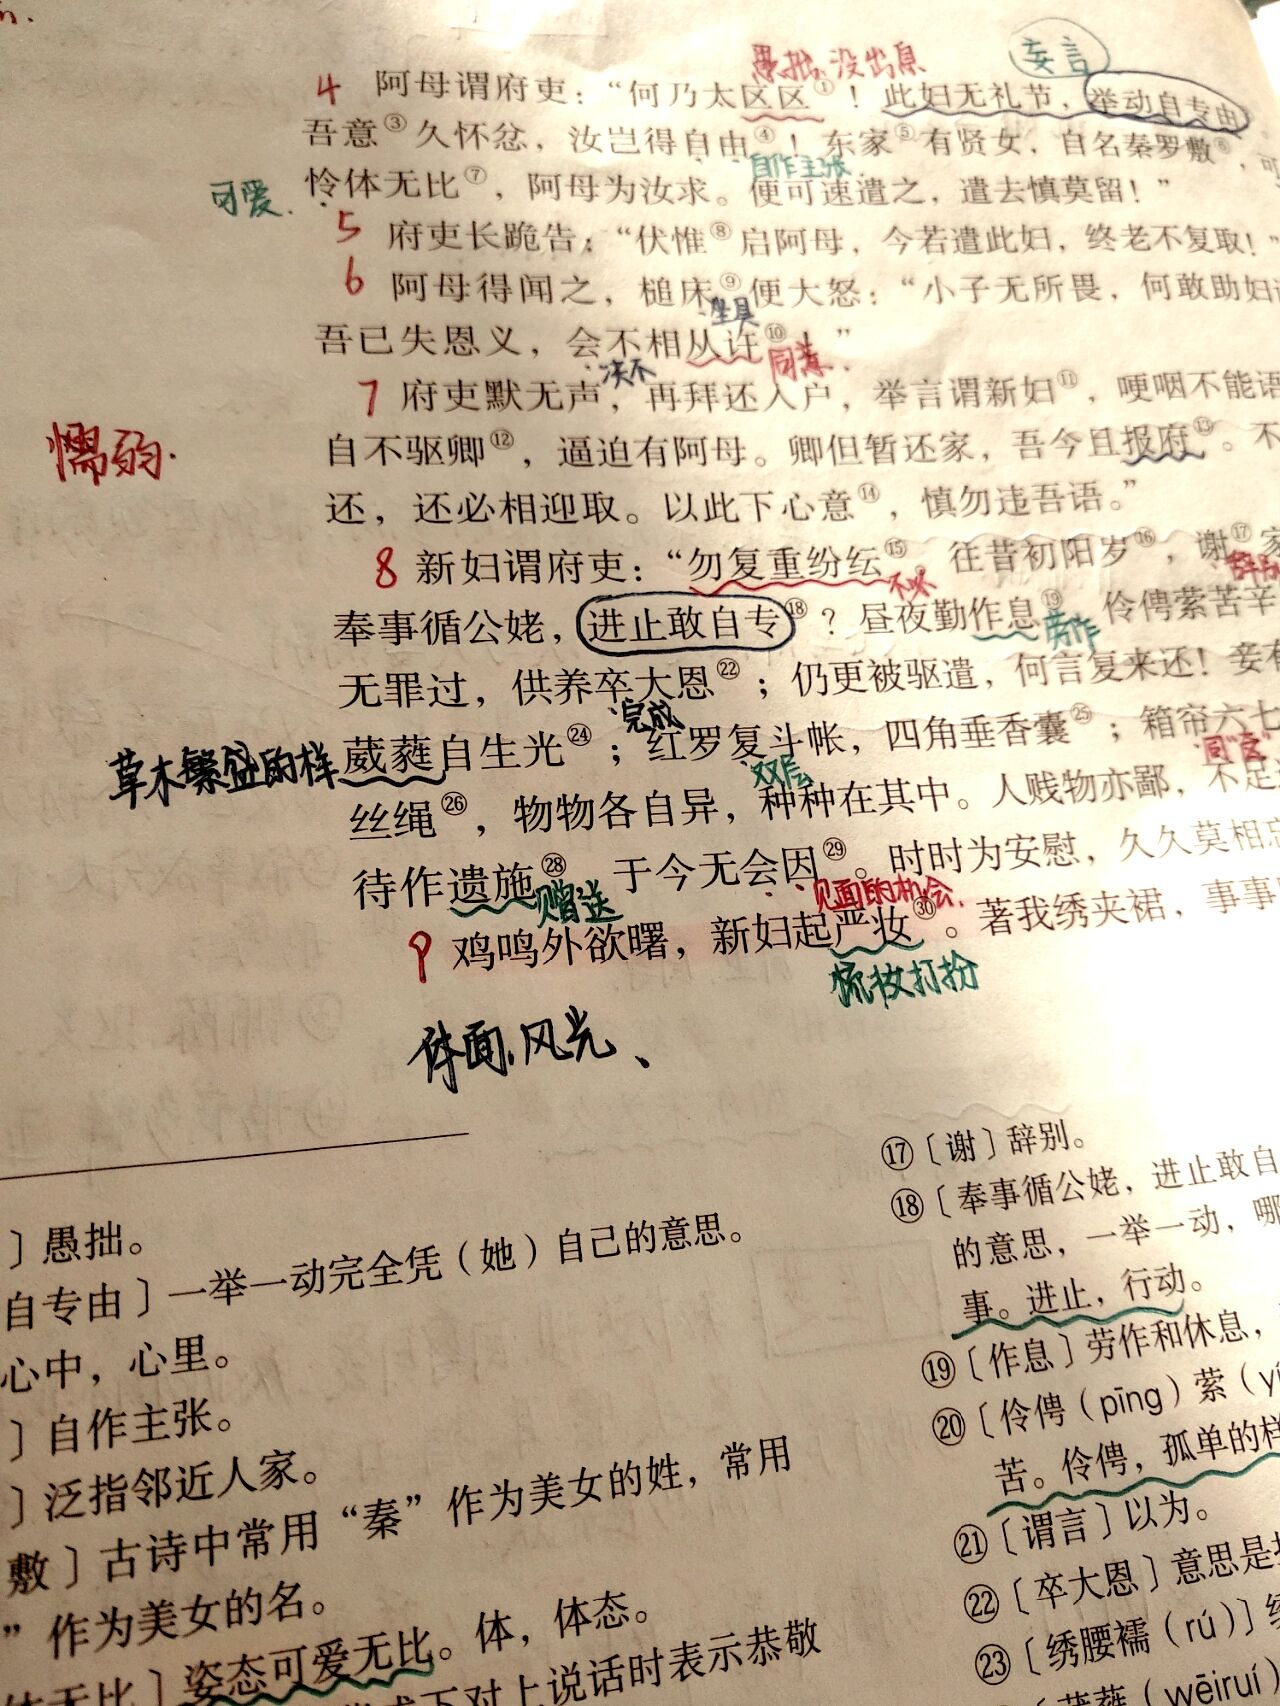 愚拙、没出息
妄言
4 阿母谓府吏：“何乃太区区①！此妇无礼节，举动自专由
吾意③久怀忿，汝岂得自由④！东家⑤有贤女，自名秦罗敷⑥，可
自作主张
可爱.
怜体无比⑦，阿母为汝求。便可速遣之，遣去慎莫留！”
5 府吏长跪告：“伏惟⑧启阿母，今若遣此妇，终老不复取！”
6 阿母得闻之，槌床⑨便大怒：“小子无所畏，何敢助妇语
坐具
吾已失恩义，会不相从许⑩！”
决不
同意.
7 府吏默无声，再拜还入户，举言谓新妇⑪，哽咽不能语
懦弱.
自不驱卿⑫，逼迫有阿母。卿但暂还家，吾今且报府⑬。不
还，还必相迎取。以此下心意⑭，慎勿违吾语。”
8 新妇谓府吏：“勿复重纷纭⑮。往昔初阳岁⑯，谢⑰家
不必
奉事循公姥，进止敢自专⑱？昼夜勤作息⑲，伶俜萦苦辛
劳作
无罪过，供养卒大恩㉒；仍更被驱遣，何言复来还！妾有
完成
草木繁盛的样
葳蕤自生光㉔；红罗复斗帐，四角垂香囊㉕；箱帘六七
双层
同“奁”
丝绳㉖，物物各自异，种种在其中。人贱物亦鄙，不足
待作遗施㉘，于今无会因㉙。时时为安慰，久久莫相忘
赠送
见面的机会.
9 鸡鸣外欲曙，新妇起严妆㉚。著我绣夹裙，事事
梳妆打扮
体面、风光、
〕愚拙。
自专由〕一举一动完全凭（她）自己的意思。
心中，心里。
〕自作主张。
〕泛指邻近人家。
敷〕古诗中常用“秦”作为美女的姓，常用
”作为美女的名。
体无比〕姿态可爱无比。体，体态。
式下对上说话时表示恭敬
⑰〔谢〕辞别。
⑱〔奉事循公姥，进止敢自
的意思，一举一动，哪
事。进止，行动。
⑲〔作息〕劳作和休息，
⑳〔伶俜（pīng）萦（yí
苦。伶俜，孤单的样
㉑〔谓言〕以为。
㉒〔卒大恩〕意思是
㉓〔绣腰襦（rú）〕绣
〔葳蕤（wēiruí）